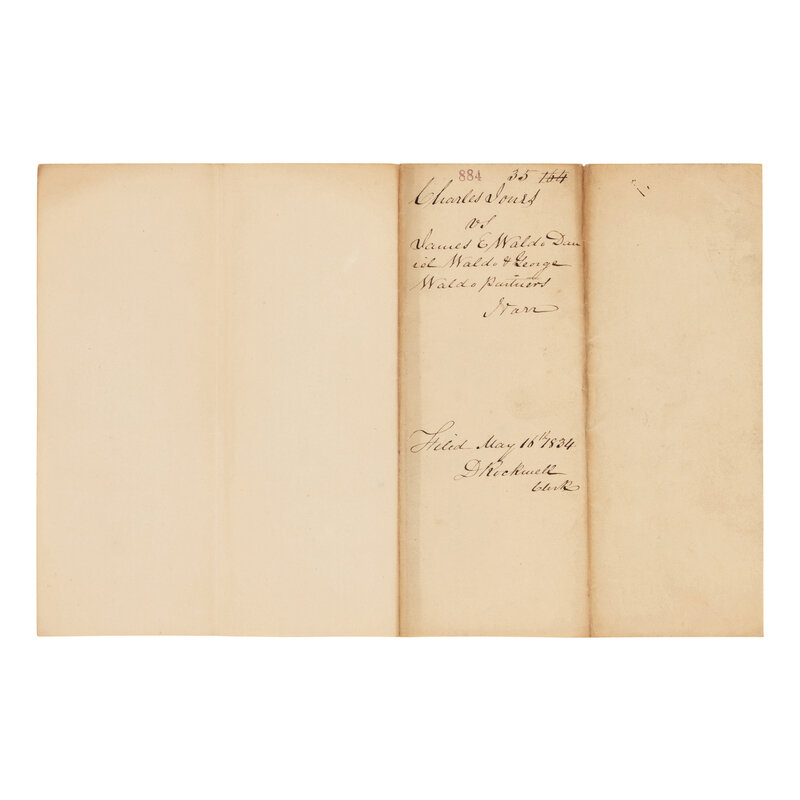 884 35 164
Charles Jones
vs
James E Waldo Dan
iel Waldo & George
Waldo Partners
Narr
Filed May 16th 1834
D Rockwell
Clerk